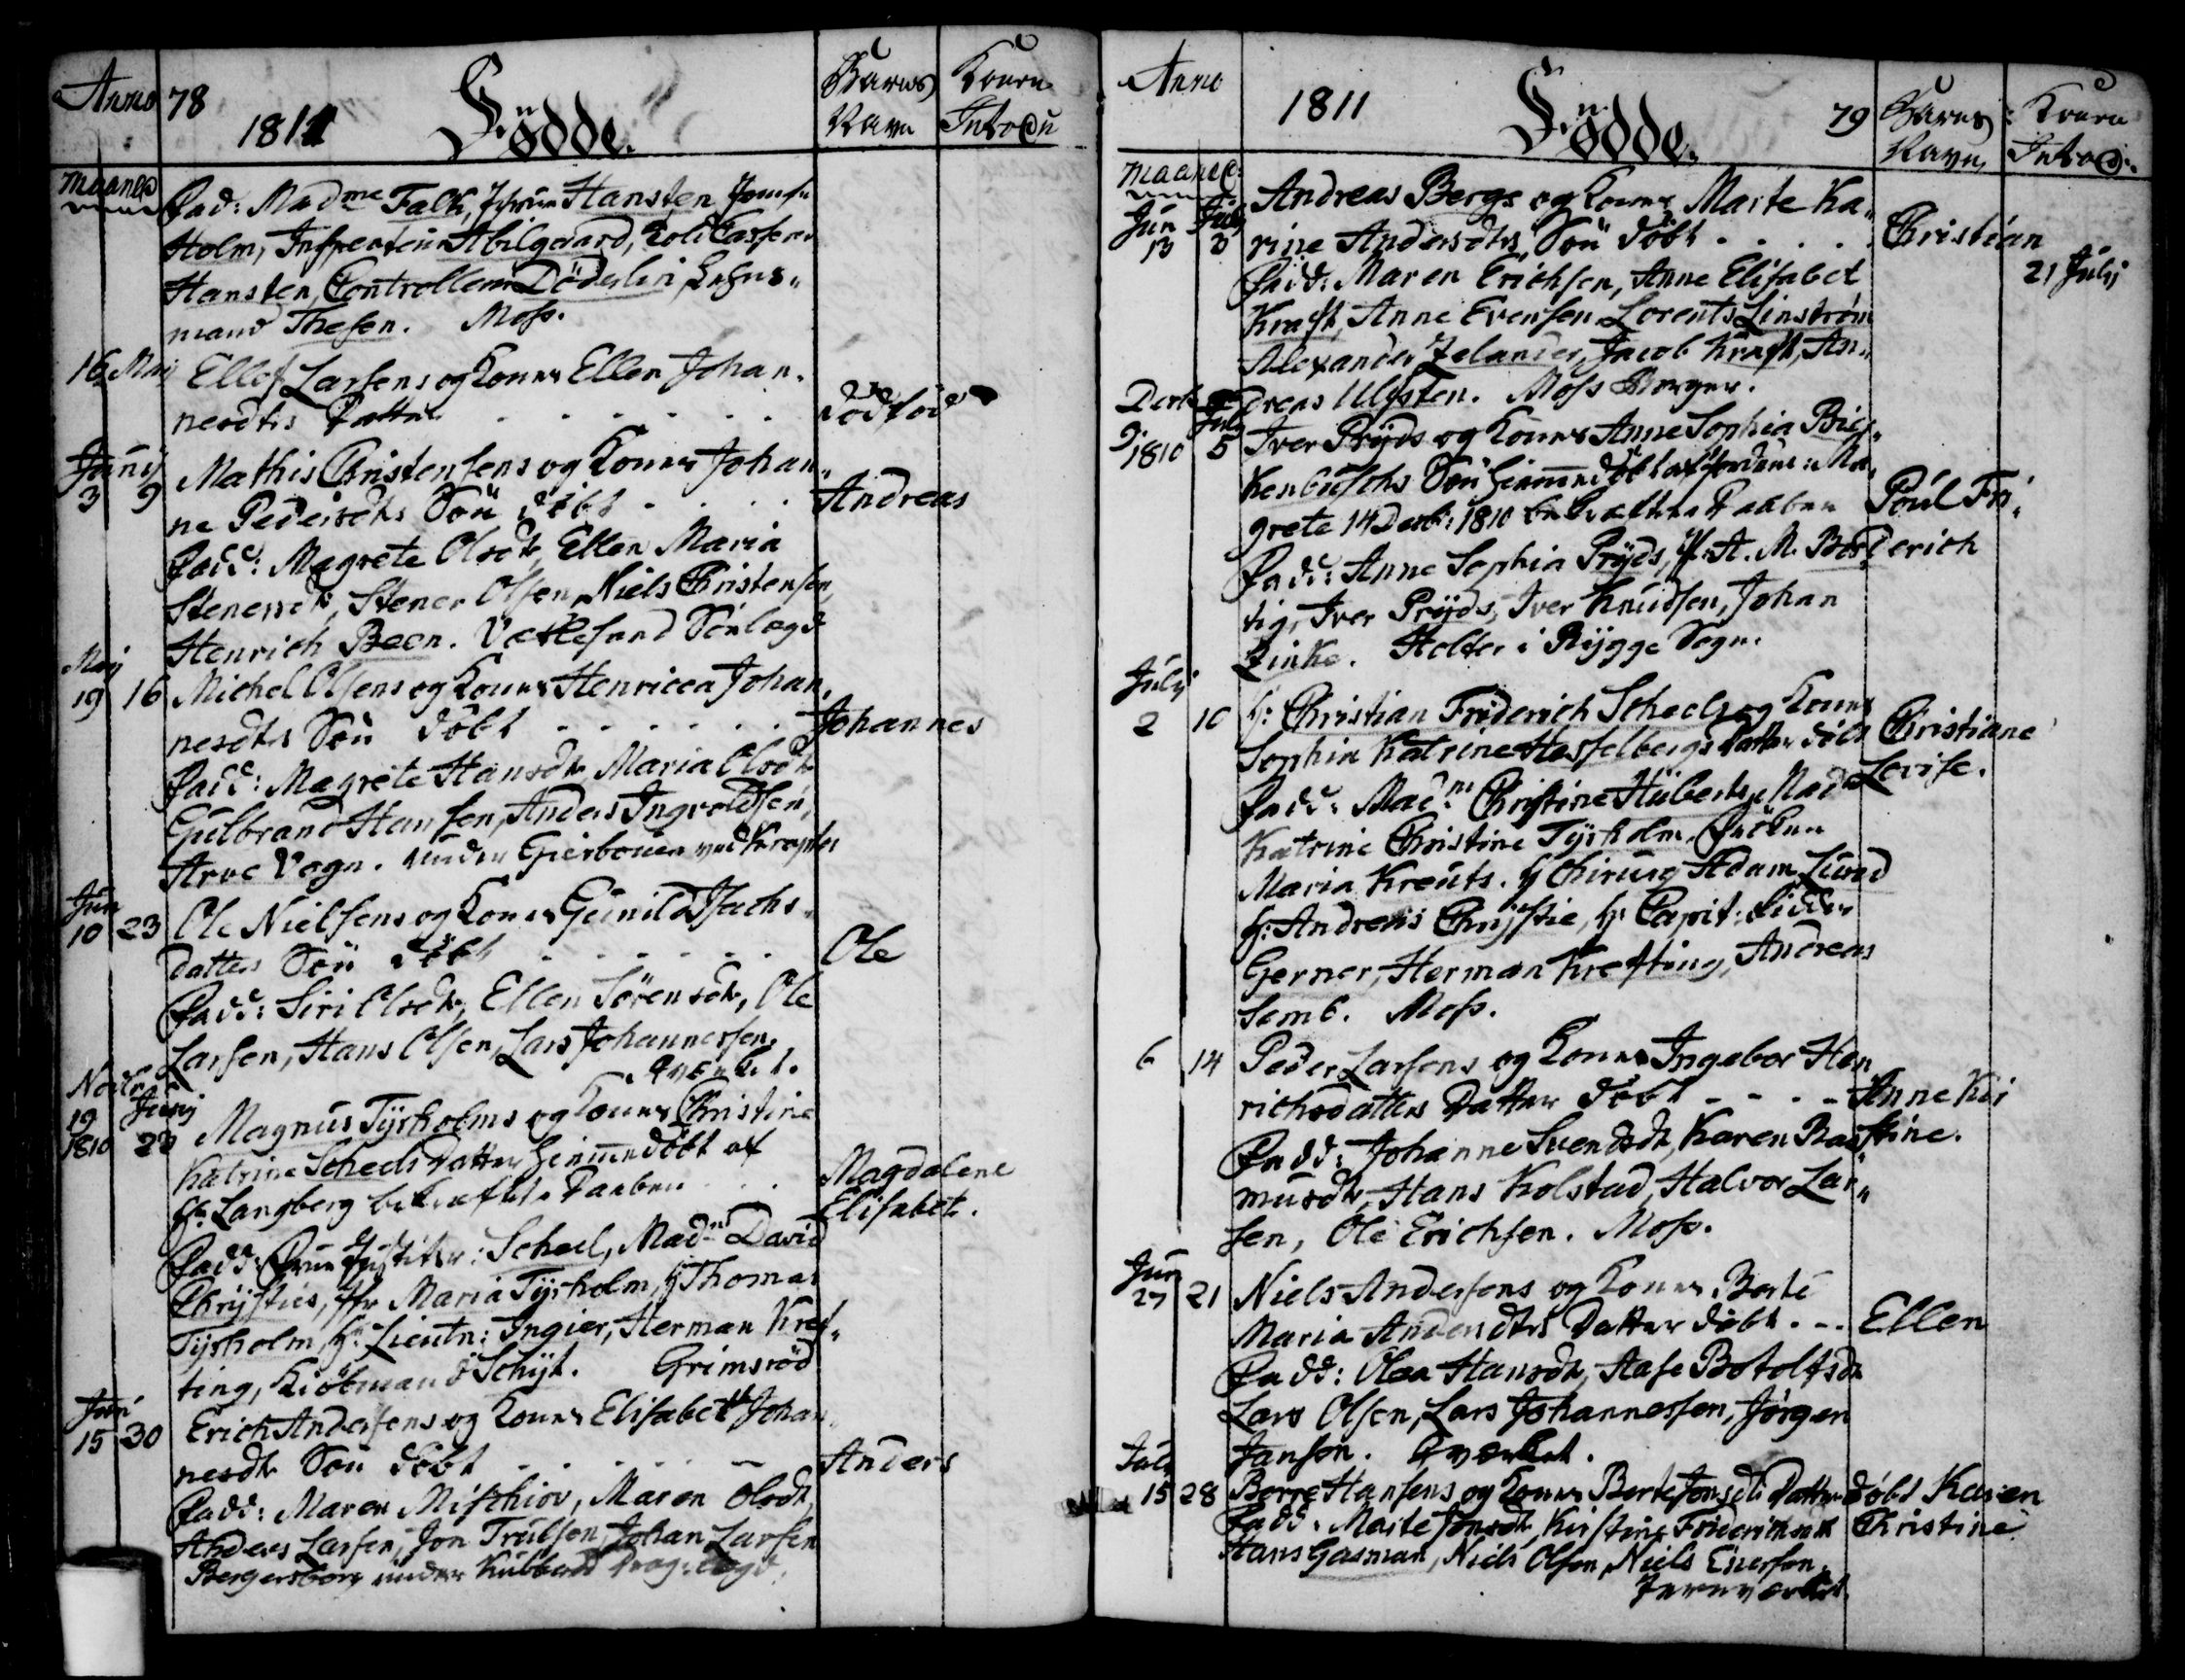 Anno 78 1811 Fødde. Barns Navn Konens Introdu
Maaned
Fad: Madme Falk, Hansten Jomfr
Holm, Abilgaard, Hold Cassere
Hansten, Controlleur Döderlin,
mand Thesen. Moss.
16 Maj Ellef Larsens og Kones Ellen Johan,
nesdtrs Datter . . . . . . dödföd
Junij
3 9 Mathis Christensens og Kones Johan,,
ne Pedersdtrs Søn döbt . . . . Andreas
Fadd: Magrete Olsdtr, Ellen Maria
Stenersdtr, Stener Olsen, Niels Christensen,
Henrich Been.
Maij
19 16 Michel Olsens og Kones Henricca Johan,
nesdtrs Søn döbt . . . . . . Johannes
Fadd: Magrete Hansdtr, Maria Olsdtr
Gulbrand Hansen, Anders Ingvoldsen,
Arve Vogn. under
Jun
10 23 Ole Nielsens og Kones Gunild Isachs,
datters Søn döbt . . . . . . Ole
Fadd: Siri Olsdtr, Ellen Sörensdtr, Ole
Larsen, Hans Olsen, Lars Johannessen.
Qværket.
Novbr Junij
19
1810 23 Magnus Tyrholms og Kones Christine
Katrine Scheels Datter hiemmedöbt af
Hr Langberg bekræftet Daaben . . . Magdalene
Elisabet.
Fadd: Frue Justitsr: Scheel, Madm David
Chrysties, Jfr Maria Tyrholm, Hr Thomas
Tyrholm, Hr: Lieutn: Ingier, Herman Kref,,
ting, Kiöbmand Schyt. Grimsröd
Juni
15 30 Erich Andersens og Kones Elisabeth Johan,
nesdtr Søn döbt . . . . . Anders
Fadd: Maren Misthiov, Maren Olsdtr,
Anders Larsen, Jon Trulsen, Johan Larsen
Bergersborg under Kubberöd
Anno 1811 Fødde. 79 Barns Navn, Konens Introd:
Maaned:
Jun July
13 3 Andreas Bergs og Kones Marte Ka,,
rine Andersdtrs Søn döbt . . . . . Christian
21 Julij
Fadd: Maren Erichsen, Anne Elisabet
Kraft, Anne Evensen, Lorents Linstrøm
Alexander Zelander, Jacob Kraft, An,,
dreas Ulfsten. Moss Borger.
Decbr July
9
1810 5 Iver Pryds og Kones Anne Sophia Bie,,
kenbuschs Søn hiemmedöbt af Ma,
grete 14 Decbr: 1810 bekræftet Daaben Poul Fri,
derich
Fadd: Anne Sophia Pryds, Jfr: A. M. Bos,
tig, Iver Pryds, Iver Knudsen, Johan
Zinke. Holter i Rygge Sogn.
Julij
2 10 Hr: Christian Friderich Scheels og Kones
Sophia Katrine Hasselbergs Datter döbt Christiane
Lovise.
Fadd: Madm Christine Hüberts, Madm
Katrine Christine Tyrholm, Fröken
Maria Kreuts. Hr Chirurg Adam Lund
Hr: Andreas Chrystie, Hr: Capit: Ridder
Gerner, Herman Krefting, Andreas
Semb. Moss.
6 14 Peder Larsens og Kones Ingebor Hen,
richsdatters Datter döbt - - - - Anne Kir
stine.
Fadd: Johanne Svendsdtr, Karen Ras,
musdtr, Hans Kolstad, Halvor Lar,,
sen, Ole Erichsen. Moss.
Jun
27 21 Niels Andersens og Kones Berte
Maria Andersdtrs Datter döbt . - Ellen
Fadd: Olea Hansdtr, Aase Botolfsdtr
Lars Olsen, Lars Johannessen, Jörgen
Jansen. Qværket.
July
15 28 Berre Hansens og Kones Berte Jonsdtr Datter döbt Karen
Fadd. Marte Jonsdtr, Kirstine Friderichsdtr Christine
Hans Gasman, Niels Olsen, Niels Enersen.
Jernværket